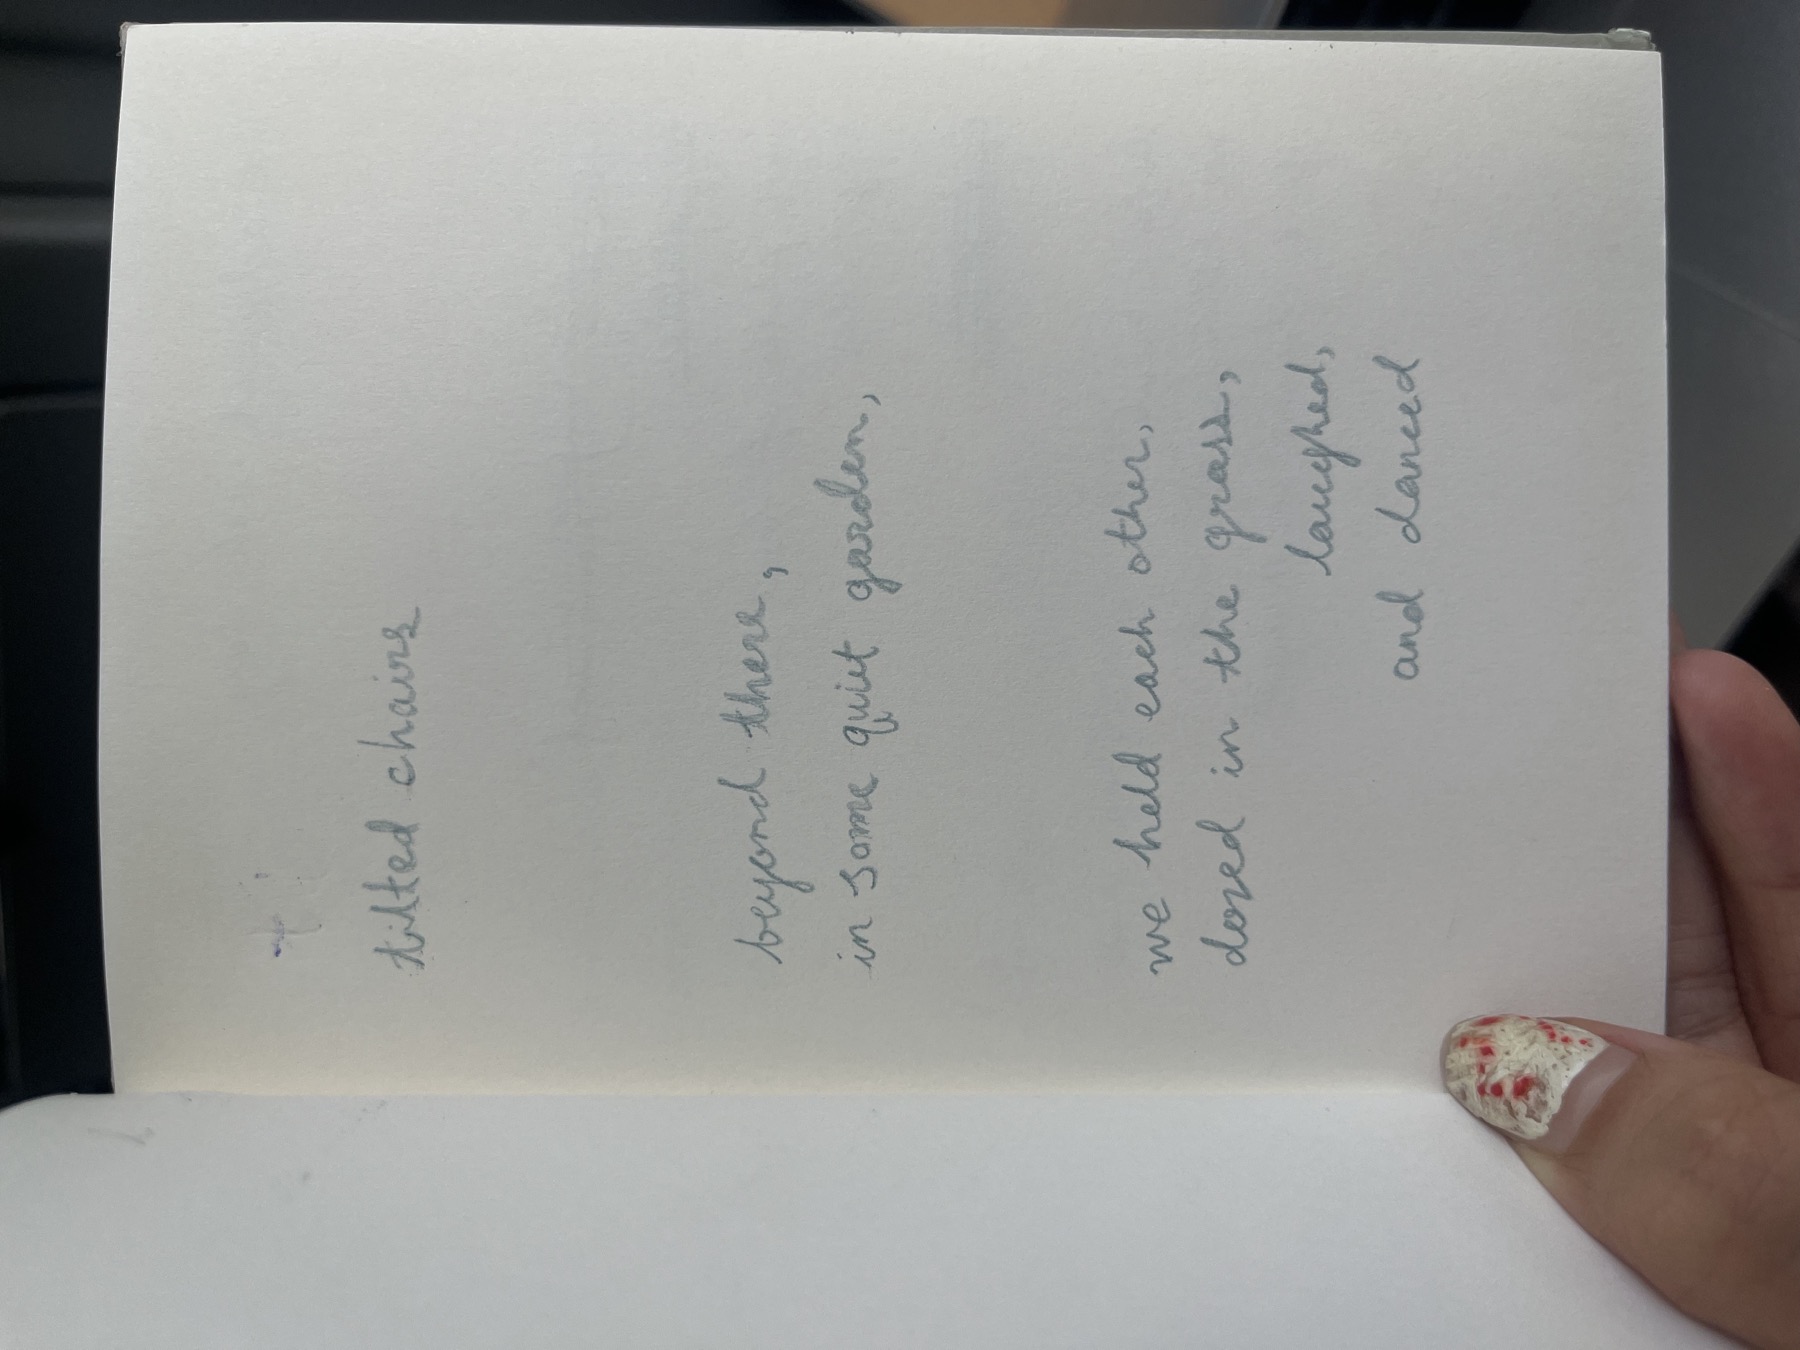 tilted chairs
beyond there,
in some quiet garden,
we held each other,
dozed in the grass,
laughed,
and danced